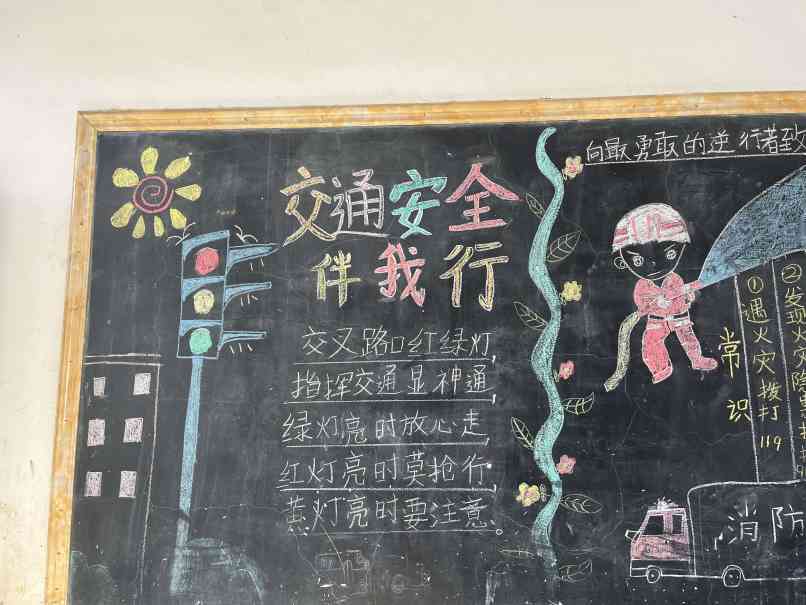 交通安全
伴我行
交叉路口红绿灯,
指挥交通显神通,
绿灯亮时放心走,
红灯亮时莫抢行,
黄灯亮时要注意。
向最勇敢的逆行者致
常识
①遇火灾拨打119
②发现火灾隐
消防